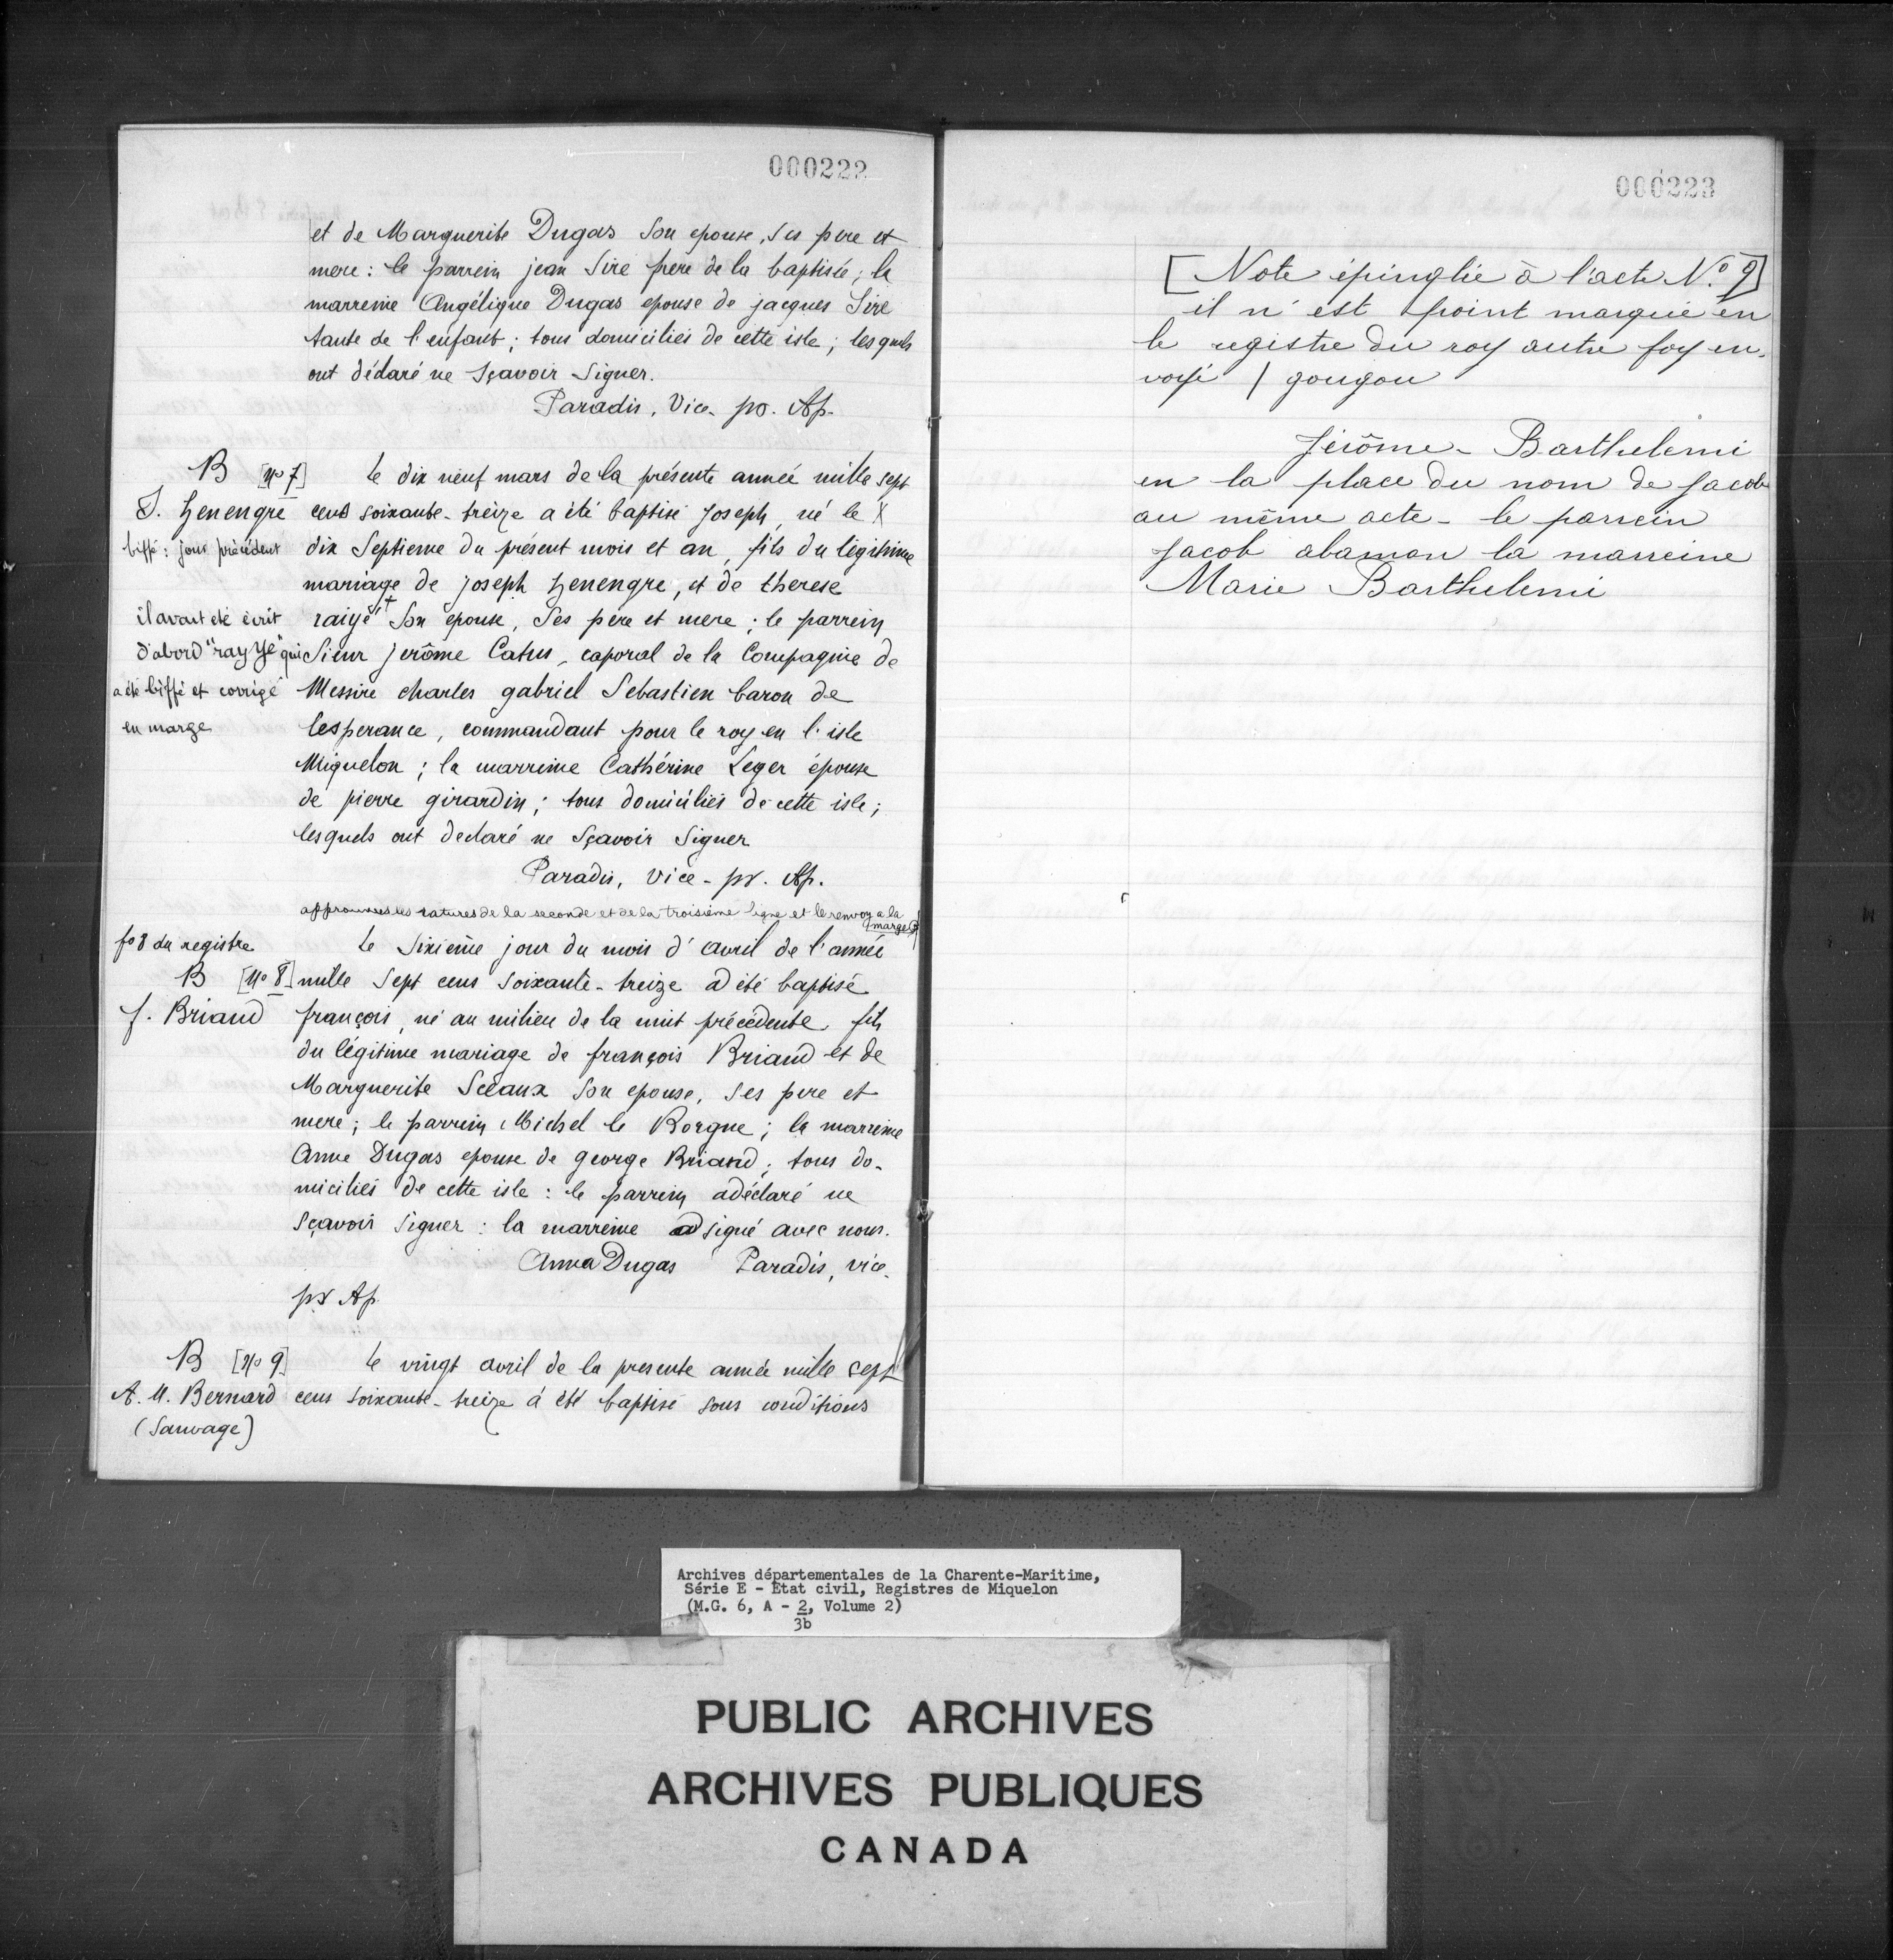 000222
et de Marguerite Dugas Son epouse, Ses pere et
mere : le parrein jean Sire frere de la baptisée ; la
marreine Angélique Dugas epouse de jacques Sire
tante de l'enfant ; tous domiciliés de cette isle ; lesquels
ont déclaré ne Sçavoir Signer.
Paradis, Vice - pr. Ap.
B [No 7] le dix neuf mars de la présente année mille sept
J. henengre cens soixante-treize a été baptisé Joseph, né le X
biffé : jour précédent dix Septieme du présent mois et an, fils du légitime
mariage de joseph henengre, et de therese
il avait été écrit raigé + Son epouse, Ses pere et mere ; le parrein
d'abord "rayyé" qui Sieur jerôme Catus, caporal de la Compagnie de
a été biffé et corrigé Messire charles gabriel Sebastien baron de
en marge lesperance, commandant pour le roy en l'isle
Miquelon ; la marreine Cathérine Leger épouse
de pierre girardin ; tous domiciliés de cette isle ;
lesquels ont declaré ne Sçavoir Signer
Paradis, Vice - pr. Ap.
approuvées les ratures de la seconde et de la troisième ligne et le renvoy a la
marge
fo 8 du registre le Sixième jour du mois d'avril de l'année
B [No 8] mille Sept cens Soixante-treize a été baptisé
f. Briand françois, né au milieu de la nuit précédente, fils
du légitime mariage de françois Briand et de
Marguerite Sceaux Son epouse, Ses pere et
mere ; le parrein Michel le Borgne ; la marreine
Anne Dugas epouse de george Briand ; tous do-
miciliés de cette isle : le parrein a déclaré ne
Sçavoir Signer : la marreine a signé avec nous.
Anna Dugas Paradis, vice-
pr Ap
B [No 9] le vingt avril de la presente année mille sept
A. M. Bernard cens soixante-treize a été baptisé sous conditions
(Sauvage)
000223
[Note épinglée à l'acte No. 9]
il n'est point marqué en
le registre du roy autre foy en-
voyé / gougou
Jérôme - Barthelemi
en la place du nom de Jacob
au même acte - le parrein
Jacob abamou la marreine
Marie Barthelemi
Archives départementales de la Charente-Maritime,
Série E - État civil, Registres de Miquelon
(M.G. 6, A - 2, Volume 2)
3b
PUBLIC ARCHIVES
ARCHIVES PUBLIQUES
CANADA